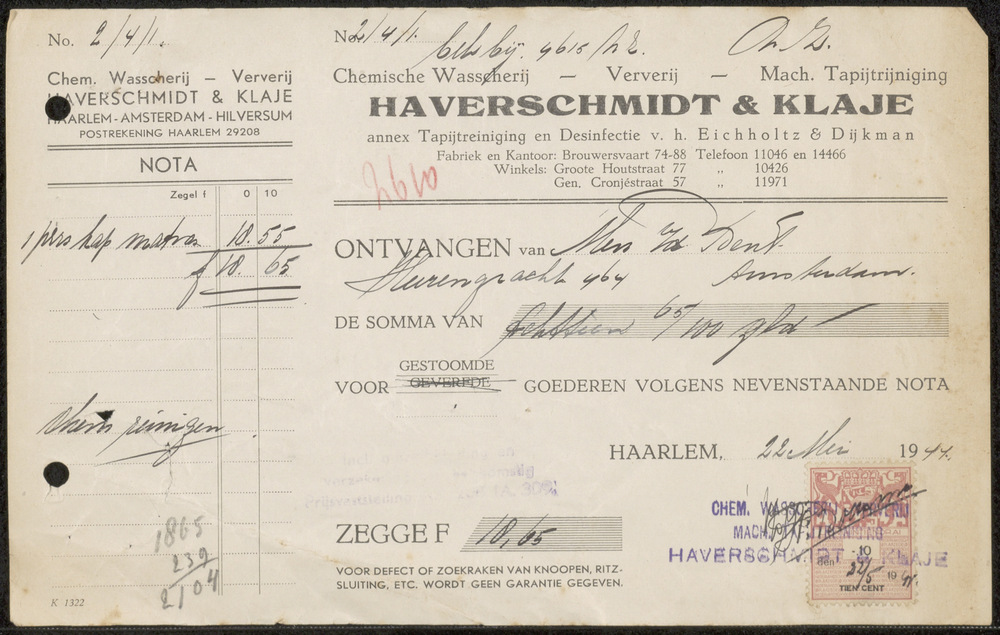 No. 2/4/1.
Chem. Wasscherij — Ververij
HAVERSCHMIDT & KLAJE
HAARLEM - AMSTERDAM - HILVERSUM
POSTREKENING HAARLEM 29208
NOTA
Zegel f 0 10
1 pers kap matras 18.55
f 18. 65
chem reinigen
1865
239
2104
K 1322
No. 2/4/1.
Chemische Wasscherij — Ververij — Mach. Tapijtrijniging
HAVERSCHMIDT & KLAJE
annex Tapijtreiniging en Desinfectie v. h. Eichholtz & Dijkman
Fabriek en Kantoor: Brouwersvaart 74-88 Telefoon 11046 en 14466
Winkels: Groote Houtstraat 77 „ 10426
Gen. Cronjéstraat 57 „ 11971
2610
ONTVANGEN van
Heerengracht 464 Amsterdam.
DE SOMMA VAN Achttien 65/100 gld
GESTOOMDE
VOOR GEVERFDE GOEDEREN VOLGENS NEVENSTAANDE NOTA
HAARLEM, 22 Mei 1944.
ZEGGE F 18,65
VOOR DEFECT OF ZOEKRAKEN VAN KNOOPEN, RITZ-
SLUITING, ETC. WORDT GEEN GARANTIE GEGEVEN.
CHEM. WASSCHERIJ VERVERIJ
MACH. TAPIJTREINIGING
HAVERSCHMIDT & KLAJE
10
den 22/5 1944.
TIEN CENT